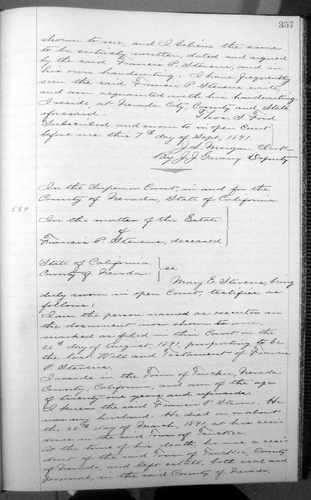 357
shown to me, and I believe the same
to be entirely written, dated and signed
by the said Francis P. Stevens, and in
his own handwriting. I have frequently
seen the said Francis P. Stevens write,
and am acquainted with his handwriting
I reside, at Nevada City, County and State
aforesaid. Thos. S. Ford
Subscribed and sworn to in open Court
before me this 7th day of Sept, 1891.
J. S. Morgan Clerk
By, J. J. Deputy
In the Superior Court, in and for the
County of Nevada, State of California.
559
In the matter of the Estate
of
Francis P. Stevens, deceased
State of California
County of Nevada ss
Mary E. Stevens, being
duly sworn in open Court, testifies as
follows:
I am the person named as executrix in
the document now shown to me,
marked as filed in this Court on the
day of August, 1891, purporting to be
the last Will and Testament of Francis
P. Stevens.
I reside in the Town of Truckee, Nevada
County, California, and am of the age
of twenty-one years and upwards.
I knew the said Francis P. Stevens. He
was my husband. He died on or about
the day of March, 1891, at his resi-
dence in the said Town of Truckee.
At the time of his death, he was a resi-
dent of the said Town of Truckee, County
of Nevada, and left estate, both real and
personal, in the said County of Nevada.